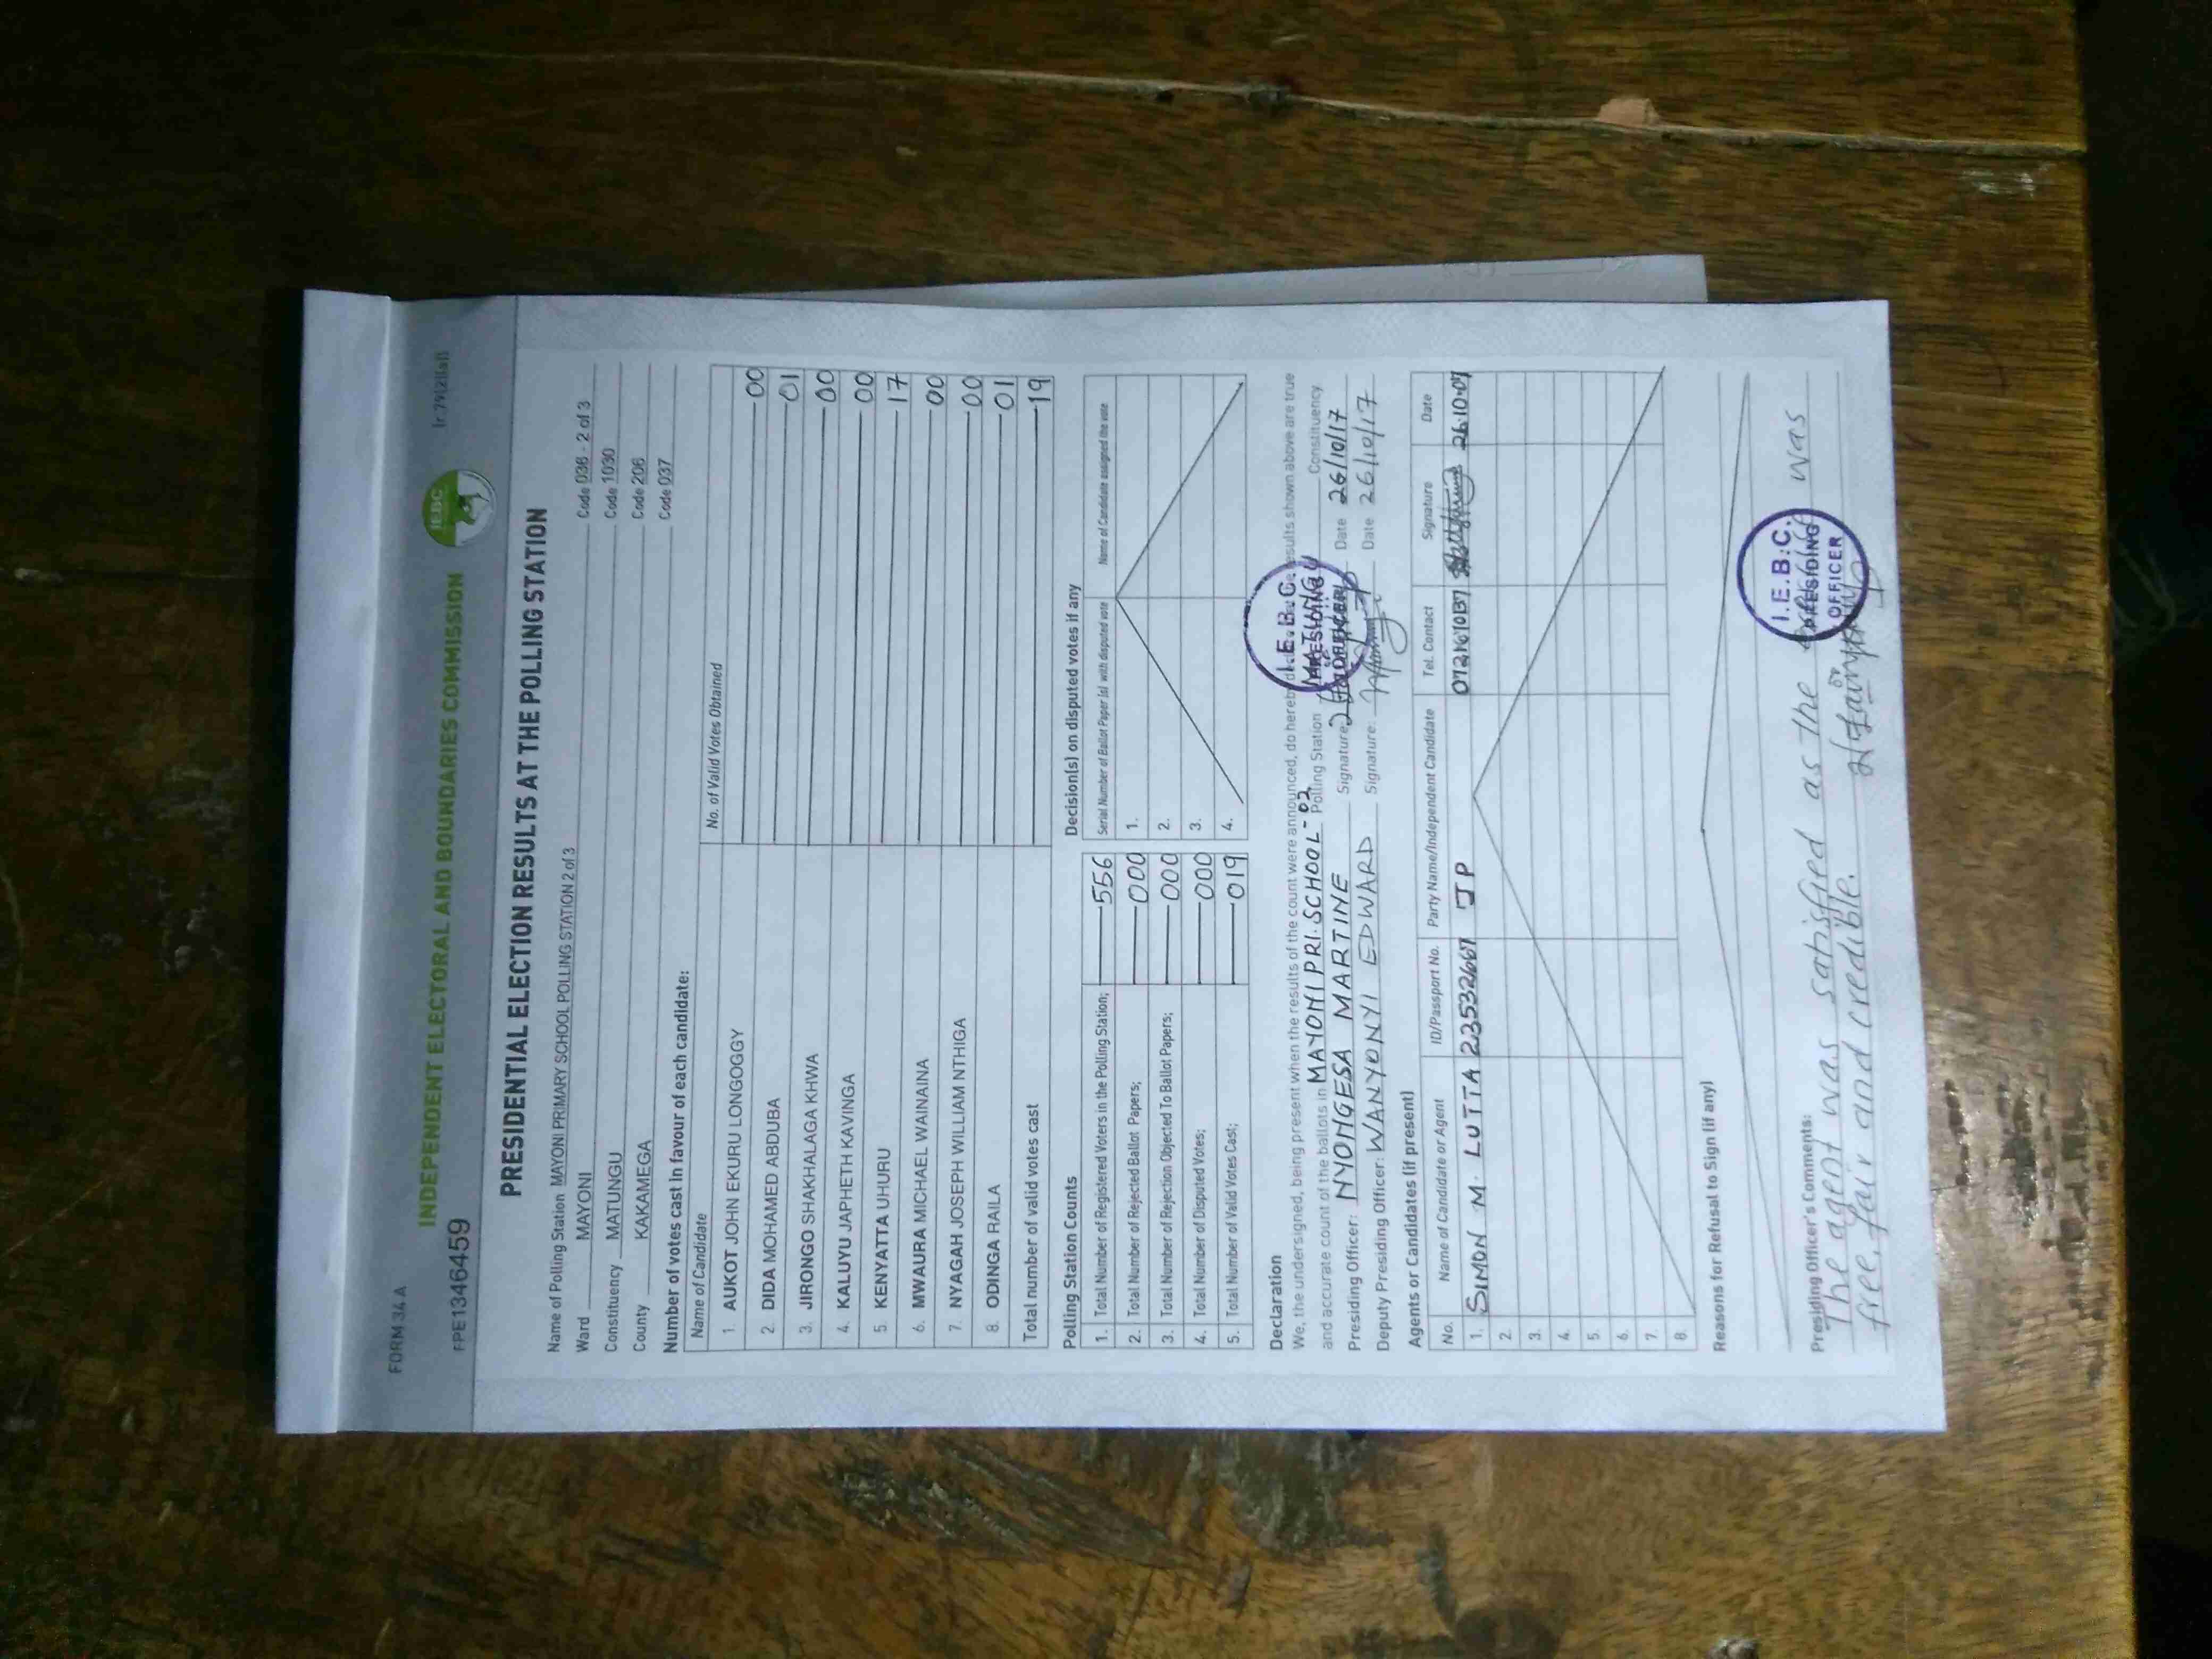 FORM 34 A
INDEPENDENT ELECTORAL AND BOUNDARIES COMMISSION
IEBC
FPE1346459
PRESIDENTIAL ELECTION RESULTS AT THE POLLING STATION
Name of Polling Station MAYONI PRIMARY SCHOOL POLLING STATION 2 of 3 Code 036 - 2 of 3
Ward MAYONI Code 1030
Constituency MATUNGU Code 206
County KAKAMEGA Code 037
Number of votes cast in favour of each candidate:
Name of Candidate No. of Valid Votes Obtained
1. AUKOT JOHN EKURU LONGOGGY 00
2. DIDA MOHAMED ABDUBA 01
3. JIRONGO SHAKHALAGA KHWA 00
4. KALUYU JAPHETH KAVINGA 00
5. KENYATTA UHURU 17
6. MWAURA MICHAEL WAINAINA 00
7. NYAGAH JOSEPH WILLIAM NTHIGA 00
8. ODINGA RAILA 01
Total number of valid votes cast 19
Polling Station Counts Decision(s) on disputed votes if any
Serial Number of Ballot Paper (s) with disputed vote Name of Candidate assigned the vote
1. Total Number of Registered Voters in the Polling Station; 556 1.
2. Total Number of Rejected Ballot Papers; 000 2.
3. Total Number of Rejection Objected To Ballot Papers; 000 3.
4. Total Number of Disputed Votes; 000 4.
5. Total Number of Valid Votes Cast; 019
Declaration
We, the undersigned, being present when the results of the count were announced, do hereby results shown above are true
and accurate count of the ballots in MAYONI PRI. SCHOOL - 02 Polling Station MATUNGU Constituency
Presiding Officer: NYONGESA MARTINE Signature: Date 26/10/17
Deputy Presiding Officer: WANYONYI EDWARD Signature: Date 26/10/17
I.E.B.C.
PRESIDING
OFFICER
Agents or Candidates (if present)
No. Name of Candidate or Agent ID/Passport No. Party Name/Independent Candidate Tel. Contact Signature Date
1. SIMON M. LUTTA 23532667 JP
2.
3.
4.
5.
6.
7.
8.
Reasons for Refusal to Sign (if any)
Presiding Officer's Comments:
The agent was satisfied as the was
free, fair and credible.
I.E.B.C.
PRESIDING
OFFICER